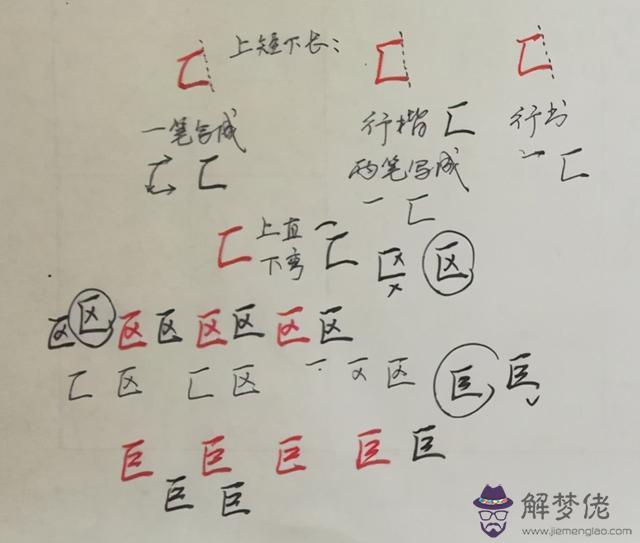 匚 上短下长: 匚 匚
一笔写成 行楷 匚 行书
匚 匚 两笔写成 一 匚
一 匚
匚 上直 一 匚 区 区
下弯
区 区 区 区 区 区 区 区
匚 区 匚 区 一 区 区 巨 巨
巨 巨 巨 巨 巨
巨 巨
解梦佬
www.jiemenglao.com